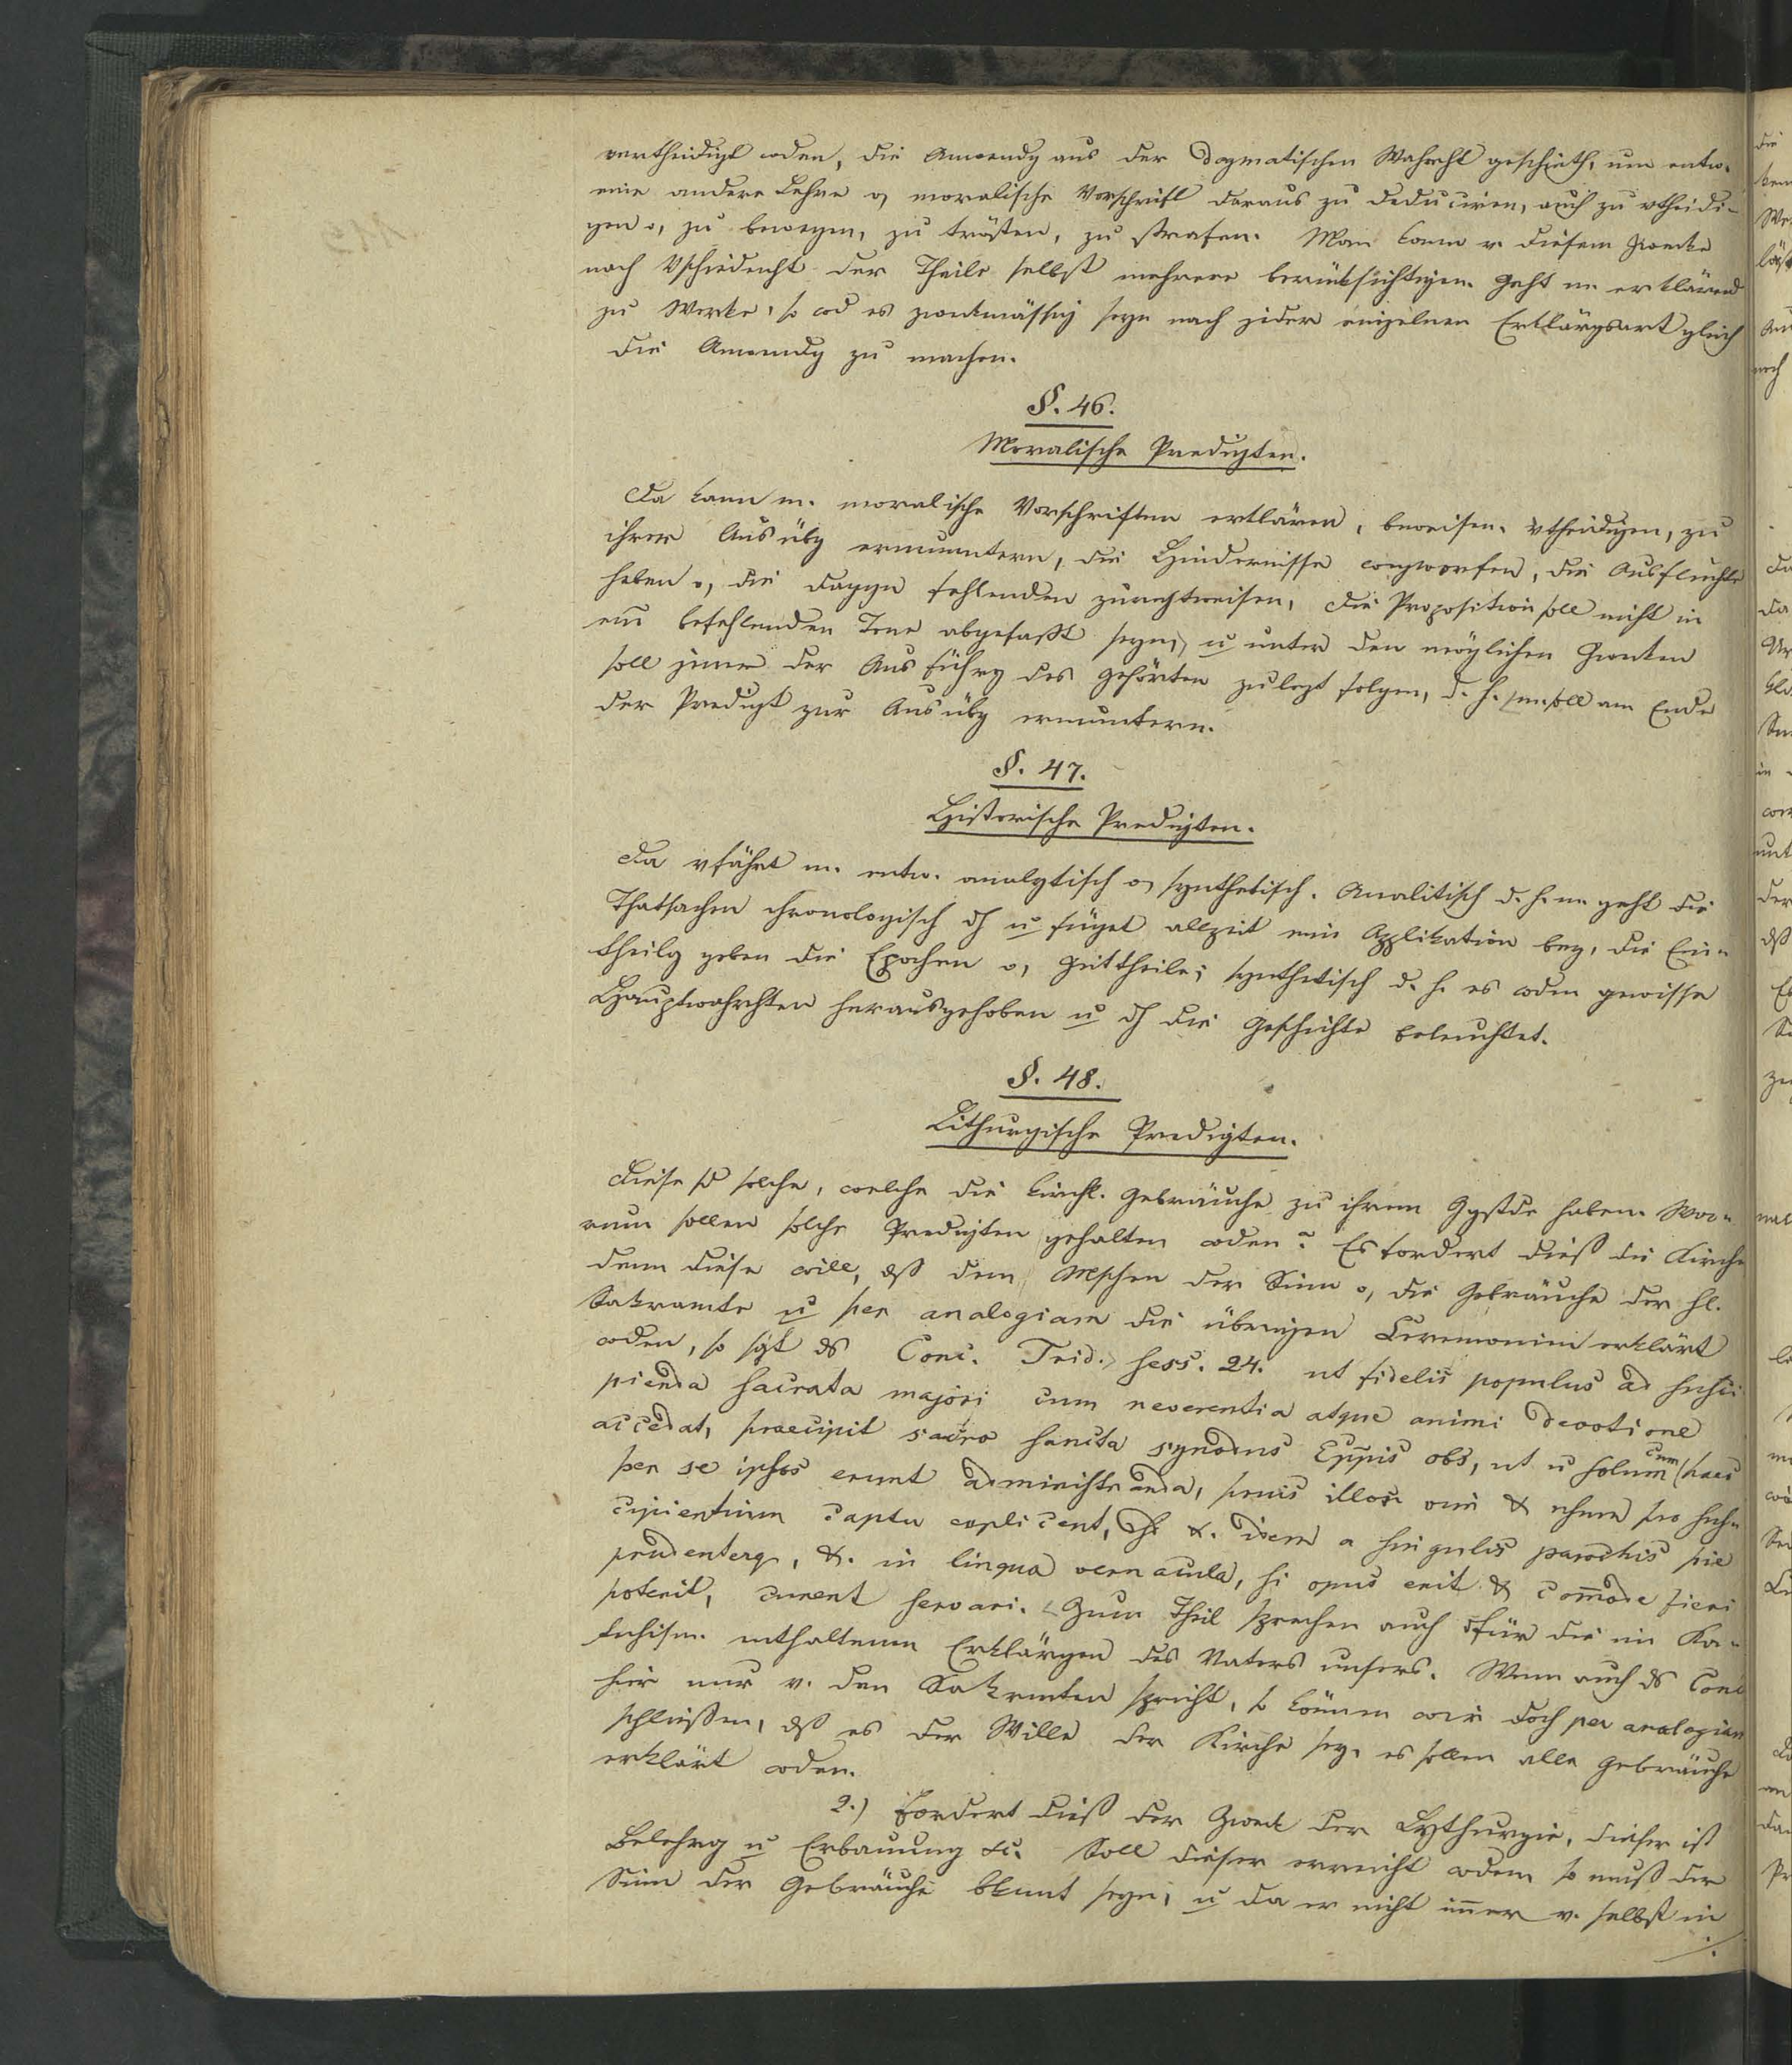 vertheidigt wden, die Anwendg aus der dogmatischen Wahrht geschieht, um entw.
eine andere Lehre o, moralische Vorschrift daraus zu deduciren, auch zu vtheidi-
gen o, zu bewegen, zu trösten, zu strafen. Man kann v. diesem Zwecke
nach Vschiedenht der Theile selbst mehrere berücksichtigen. Geht m. erklärend
zu Werke, so wd es zweckmässig seyn nach jeder einzelnen Erklärgsart gleich
die Anwendg zu machen.
§. 46.
Moralische Predigten.
Da kann m. moralische Vorschriften erklären, beweisen, vtheidigen, zu
ihrer Ausübg ermuntern, die Hindernisse wegwerfen, die Ausflüchte
heben o, die dagegen fehlenden zurechtweisen, die Proposition soll nicht in
ein befehlenden Tone abgefaßt seyn, u unter den möglichen Zwecken
soll jener der Ausführg des Gehörten zulezt folgen, d. h. m. soll am Ende
der Predigt zur Ausübg ermuntern.
§. 47.
Historische Predigten.
Da vfährt m. entw. analytisch o, synthetisch. Analitisch d. h. m. geht die
Thatsachen chronologisch dh u füget allzeit eine Applikation bey, die Ein-
theilg geben die Epochen o, Zeittheile; synthetisch d. h. es wden gewisse
Hauptwahrhten herausgehoben u dh die Geschichte beleuchtet.
§. 48.
Lithurgische Predigten.
Diese sd solche, welche die kirchl. Gebräuche zu ihrem Ggstde haben. Wa-
rum sollen solche Predigten gehalten wden? Es fordert dieß die Kirche
denn diese will, dß dem Mschen der Sinn o, die Gebräuche der hl.
Sakramte u per analogiam die übrigen Ceremonien erklärt
wden, so sgt ds Conc. Trid. sess. 24. ut fidelis populus ad susci
pienda sacrata majori cum reverentia atque animi devotione
accedat, praecipit sacro sancta synodus Eppis obs, ut n solum cum haec
per se ipsos erunt administranda, prius illor vim & usum pro susi-
cipientium captu explicent, sed &. idem a singulis parochis pie
prudenterq, &. in lingua vernacula, si opus erit & com̄ode fieri
poterit, curent servari. Zum Theil sprechen auch dfür die im Ka-
techism. enthaltenen Erklärgen des Vaters unsers. Wenn auch ds Conc
hier nur v. den Sakrmten spricht, so können wir doch per analogiam
schließen, dß es der Wille der Kirche sey, es sollen alle Gebräuche
erklärt wden.
2.) Fordert dieß der Zweck der Lythurgie, dieser ist
Belehrg u Erbauung &c. Soll dieser erreicht wden, so muß der
Sinn der Gebräuche bkannt seyn, u da er nicht im̄er v. selbst in
./.